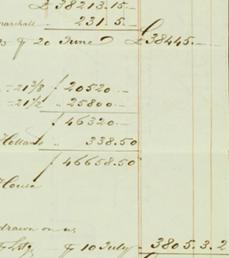 £ 38213.15.—
marshall .. 231 5.—
20 June £38445.—
= 21 3/8 f 20520 —
= 21 1/2 " 25800 —
f 46320 —
Holland 338.50
f 46658.50
House
drawn on us
10 July - 3805.3.2